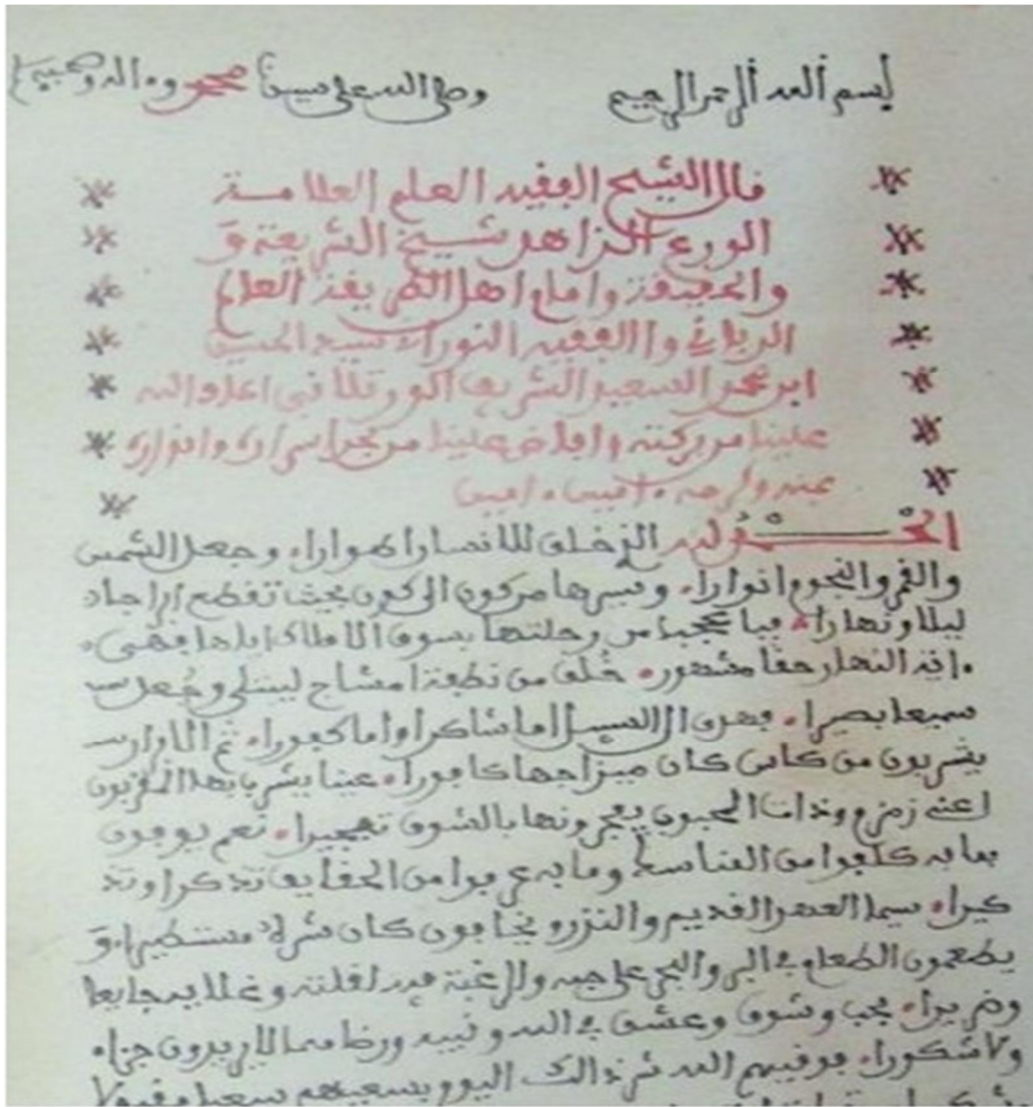 بسم الله الرحمن الرحيم وصلى الله على سيدنا محمد وءاله وصحبه
قال الشيخ الفقيه العلم العلامة
الورع الزاهد شيخ الشريعة و
والحقيقة وامام اهل الطريقة العلم
الرباني والفقيه النوراني سيد الحسين
ابن محمد السعيد الشريف الورتلاني اعاد الله
علينا من بركته وافاض علينا من بحر اسراره وانواره
بمنه وكرمه امين امين
الحمد لله الذي خلق للانسان اطوارا وجعل الشمس
والقمر والنجوم انوارا وسيرها من كون الى كون بحيث تقطع ابراجاد
ليلا ونهارا فيا عجبا من رحلتها بسوق الافلاك اياها فهي
اية النهار حقا مشهور خلق من نطفة امشاج ليبتلى وجعل
سميعا بصيرا فهدي الى السبيل اما شاكرا واما كفورا ثم الابرار
يشربون من كاس كان ميزاجها كافورا عينا يشرب بها المقربون
اعني زمزم وذات المحبون يفجرونها بالشوق تفجيرا نعم يوفون
بما به كلفوا من المناسك وما به عرفوا من الحقايق تذكرا وتذ
كيرا سيما العهد القديم والنذر ويخافون كان شره مستطيرا و
يطعمون الطعام في البر والبحر على حبه والرغبة فيه لقلته وغلايه جايعا
وضريرا بحب وشوق وعشق في الله ونبيه ورضا مما لا يريدون جزاء
ولا شكورا فوقيهم الله شر ذالك اليوم وبسعيهم سعيا مقبولا